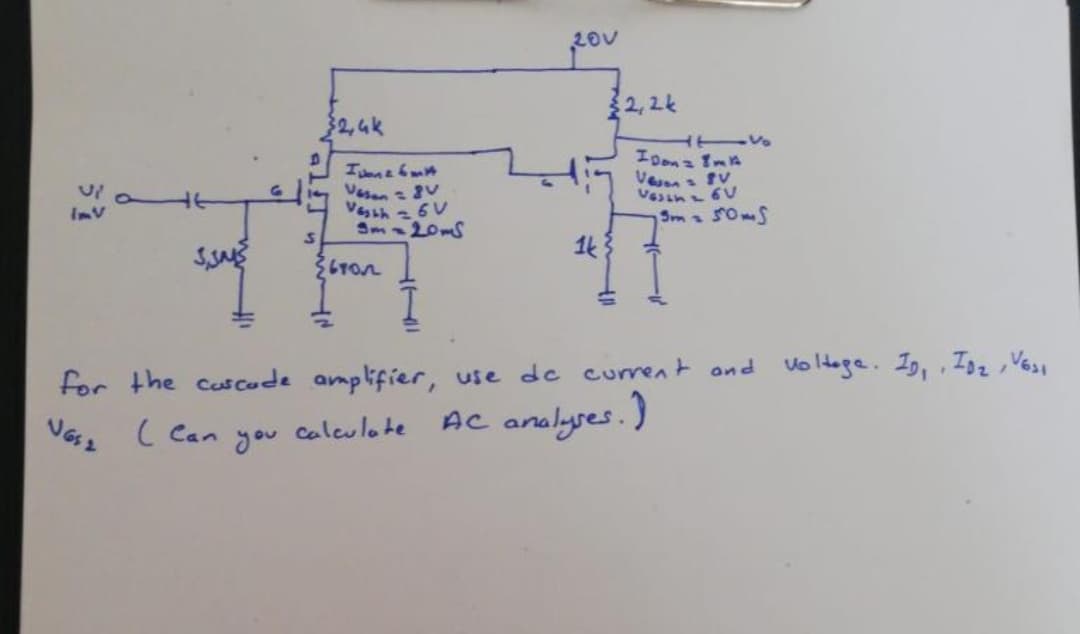 20V
2,2k
2,4k
Vo
D
IDon = 6mA
VGSon = 8V
VGSth = 6V
gm = 20mS
IDon = 8mA
VGSon = 8V
VGSth = 6V
gm = 50mS
Vi
1mV
G
G
S
3,3M
680Ω
1k
for the cascade amplifier, use dc current and voltage. ID1, ID2, VGS1
VGS2 ( Can you calculate AC analyses.)